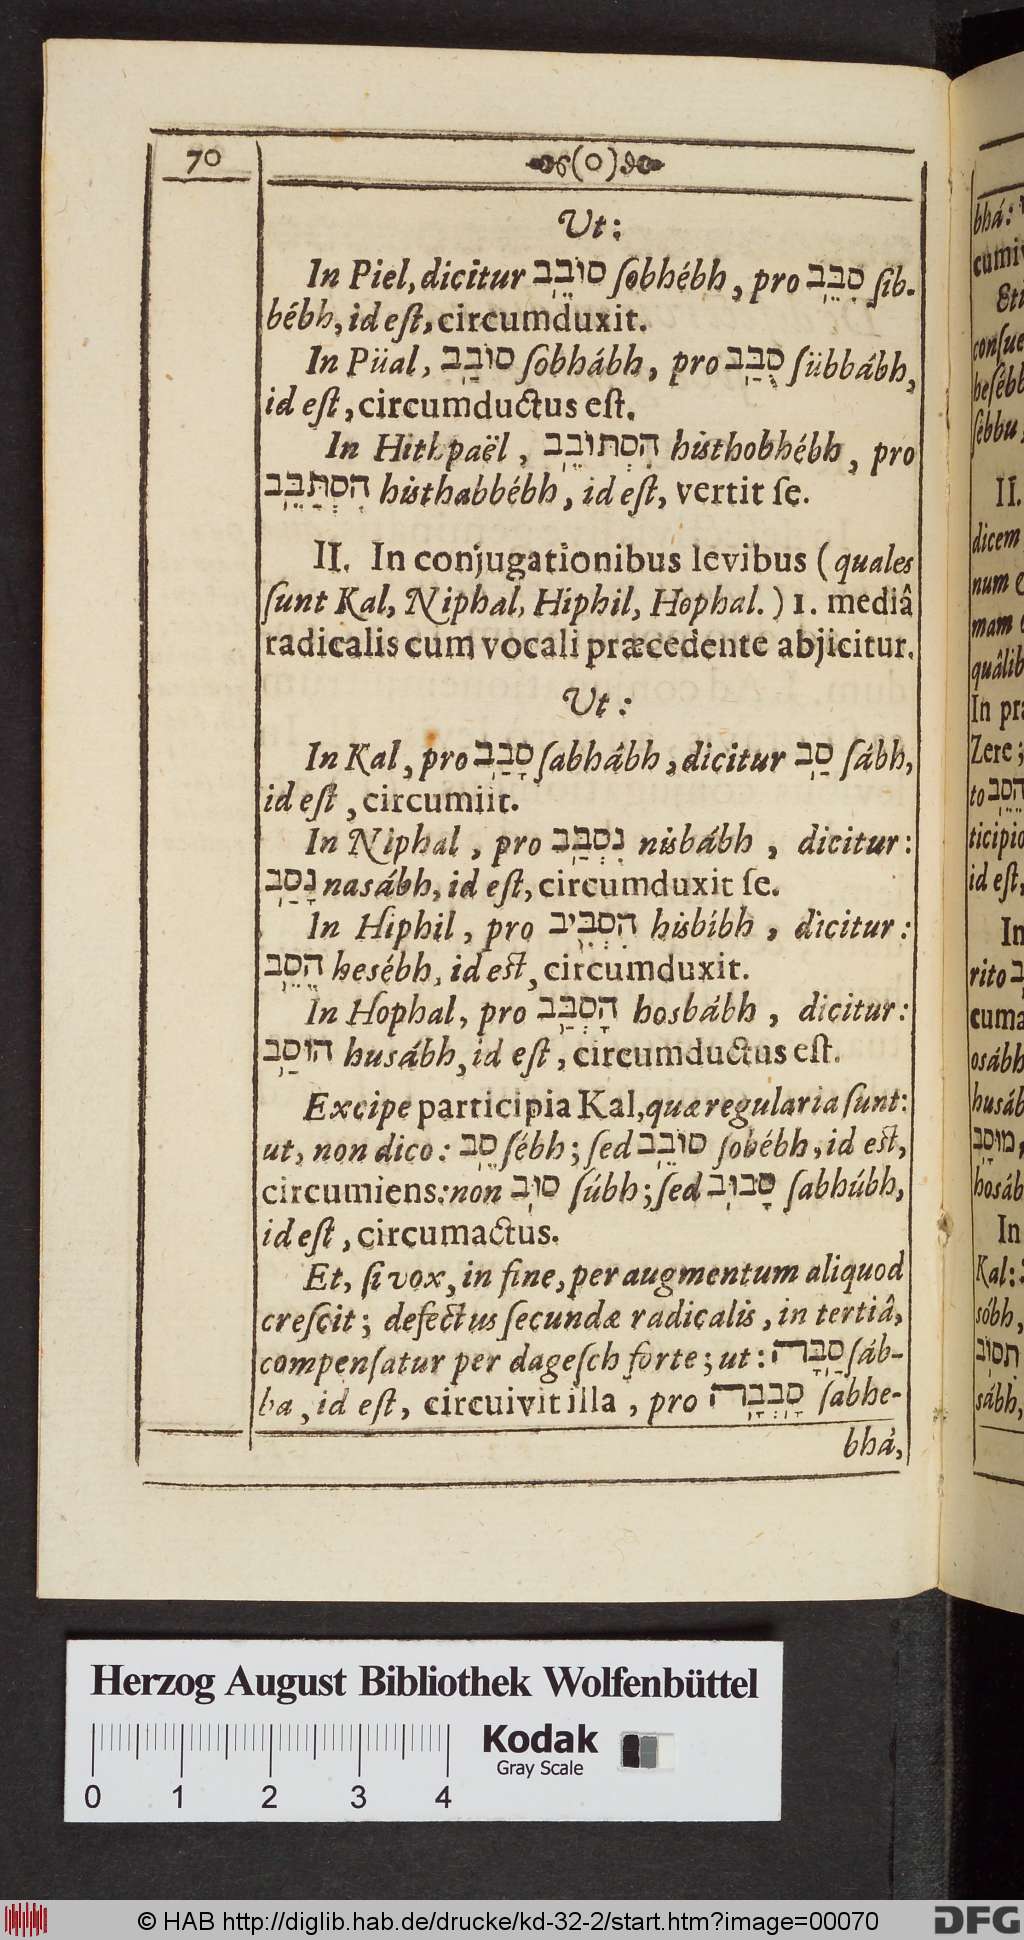 70
(o)
Ut:
In Piel, dicitur סוֹבֵב ſobhébh, pro סִבֵּב ſib-
bébh, id eſt, circumduxit.
In Püal, סוֹבַב ſobhábh, pro סֻבַּב ſübbábh,
id eſt, circumductus eſt.
In Hithpaël, הִסְתּוֹבֵב histhobhébh, pro
הִסְתַּבֵּב histhabbébh, id eſt, vertit ſe.
II. In conjugationibus levibus (quales
ſunt Kal, Niphal, Hiphil, Hophal.) 1. mediâ
radicalis cum vocali præcedente abjicitur.
Ut:
In Kal, pro סָבַב ſabhábh, dicitur סַב ſábh,
id eſt, circumiit.
In Niphal, pro נִסְבַּב nisbábh, dicitur:
נָסַב nasábh, id eſt, circumduxit ſe.
In Hiphil, pro הִסְבִּיב hisbíbh, dicitur:
הֵסֵב hesébh, id est, circumduxit.
In Hophal, pro הָסְבַּב hosbábh, dicitur:
הוּסַב husábh, id eſt, circumductus eſt.
Excipe participia Kal, quæ regularia ſunt:
ut, non dico: סֵב ſébh; ſed סוֹבֵב ſobébh, id est,
circumiens: non סוּב ſúbh; ſed סָבוּב ſabhúbh,
id eſt, circumactus.
Et, ſi vox, in fine, per augmentum aliquod
creſcit; defectus ſecundæ radicalis, in tertiâ,
compenſatur per dageſch forte; ut: סַבָּה ſáb-
ba, id eſt, circuivit illa, pro סָבְבָה ſabhe-
bhá,
bhá:
cumi
Eti
conſue
heſébb
ſébbu,
II.
dicem
num
mam
quâlib
In præ
Zere;
to הֵסֵב
ticipio
id eſt,
In
rito
cuma
osább
husáb
מוּסָב,
hosáb
In
Kal:
sóbh,
תסוֹב
sábh,
Herzog August Bibliothek Wolfenbüttel
Kodak
Gray Scale
0 1 2 3 4
© HAB http://diglib.hab.de/drucke/kd-32-2/start.htm?image=00070
DFG